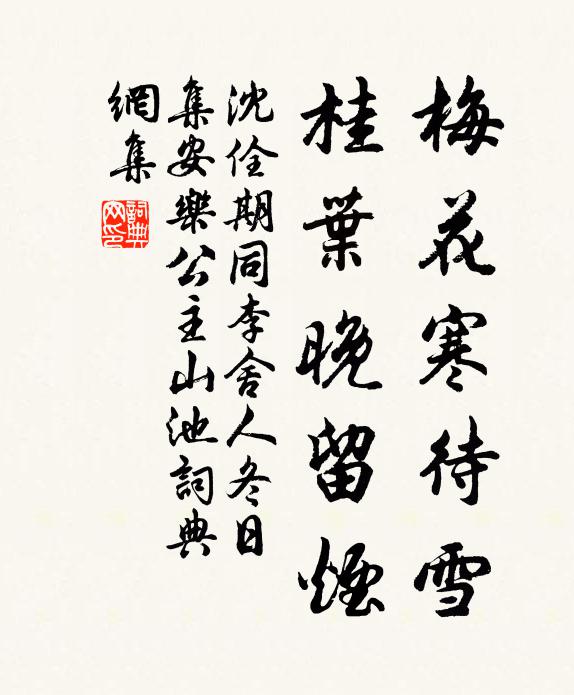 梅花寒待雪
桂葉晚留煙
沈佺期同李舍人冬日
集安樂公主山池詞典
網集
詞典
网印